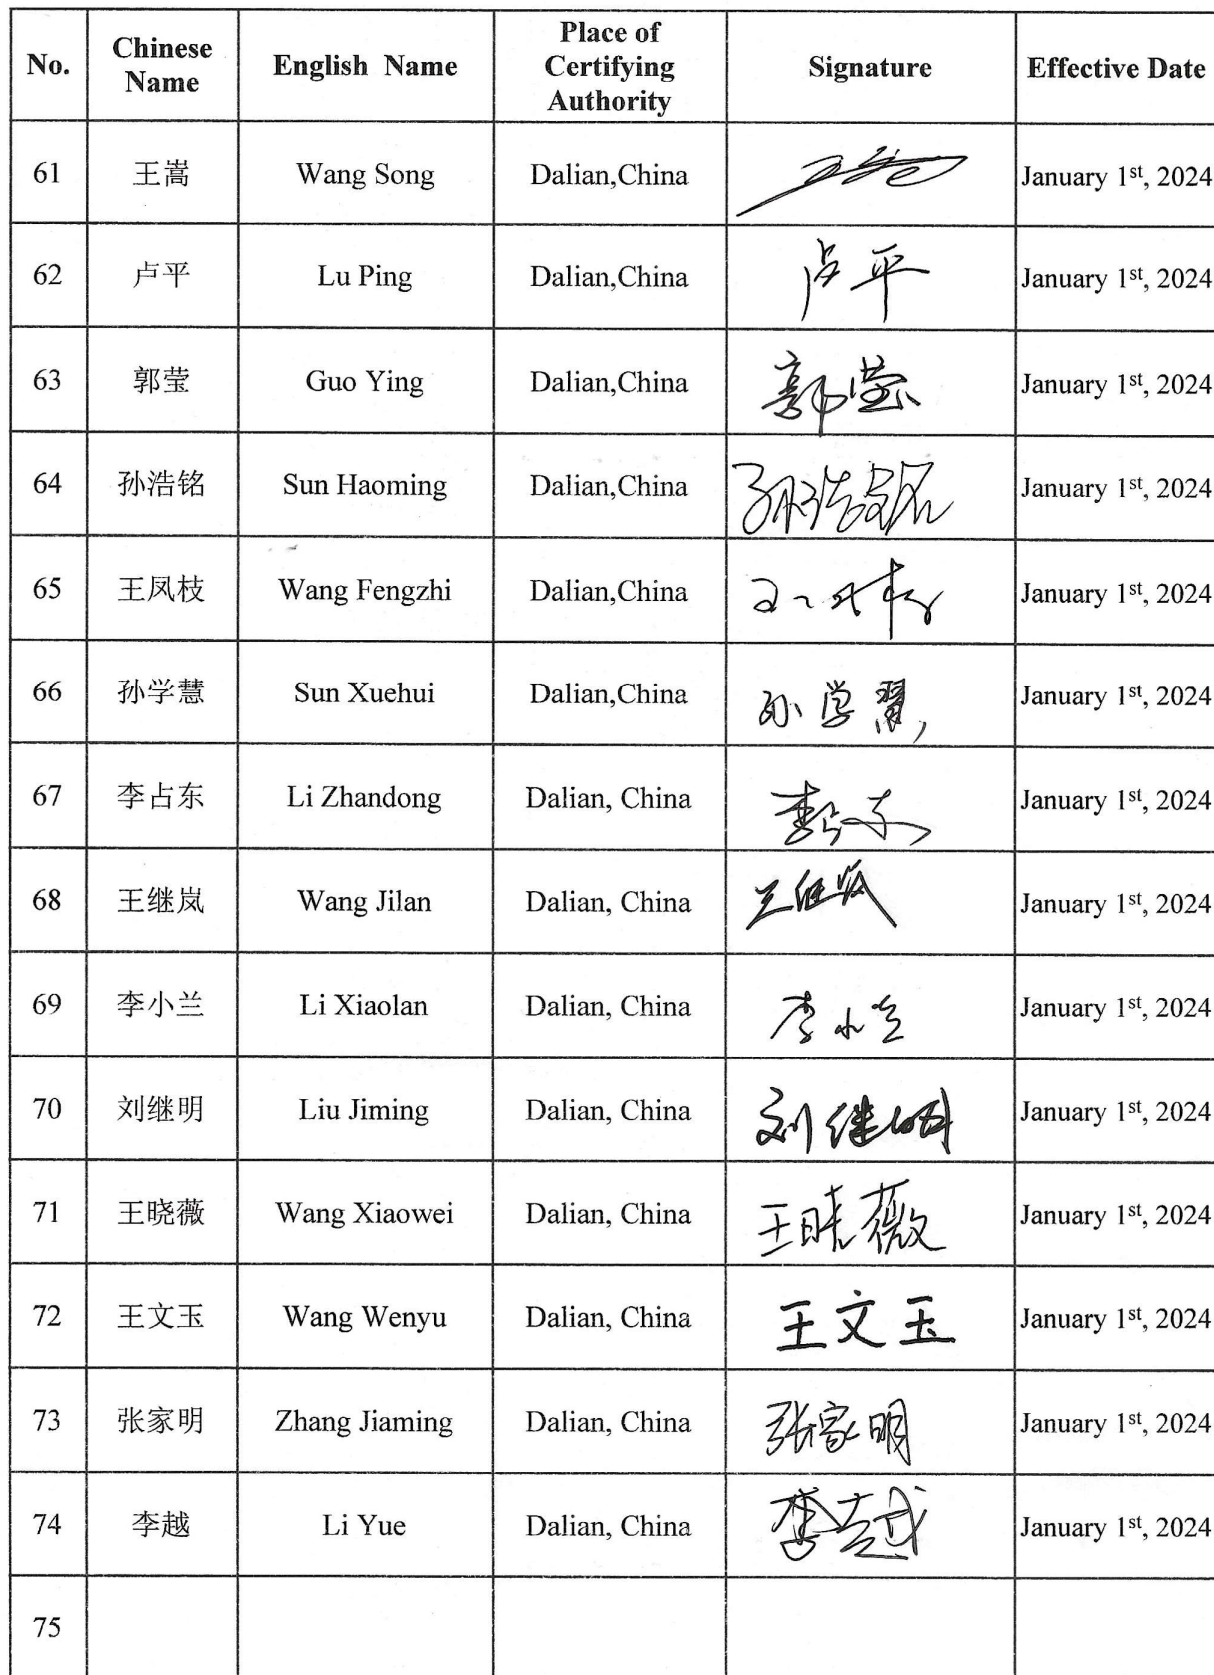 No. Chinese Name English Name Place of Certifying Authority Signature Effective Date
61 王嵩 Wang Song Dalian,China January 1st, 2024
62 卢平 Lu Ping Dalian,China 卢平 January 1st, 2024
63 郭莹 Guo Ying Dalian,China 郭莹 January 1st, 2024
64 孙浩铭 Sun Haoming Dalian,China 孙浩铭 January 1st, 2024
65 王凤枝 Wang Fengzhi Dalian,China January 1st, 2024
66 孙学慧 Sun Xuehui Dalian,China 孙学慧 January 1st, 2024
67 李占东 Li Zhandong Dalian, China 李占东 January 1st, 2024
68 王继岚 Wang Jilan Dalian, China 王继岚 January 1st, 2024
69 李小兰 Li Xiaolan Dalian, China 李小兰 January 1st, 2024
70 刘继明 Liu Jiming Dalian, China 刘继明 January 1st, 2024
71 王晓薇 Wang Xiaowei Dalian, China 王晓薇 January 1st, 2024
72 王文玉 Wang Wenyu Dalian, China 王文玉 January 1st, 2024
73 张家明 Zhang Jiaming Dalian, China 张家明 January 1st, 2024
74 李越 Li Yue Dalian, China 李越 January 1st, 2024
75